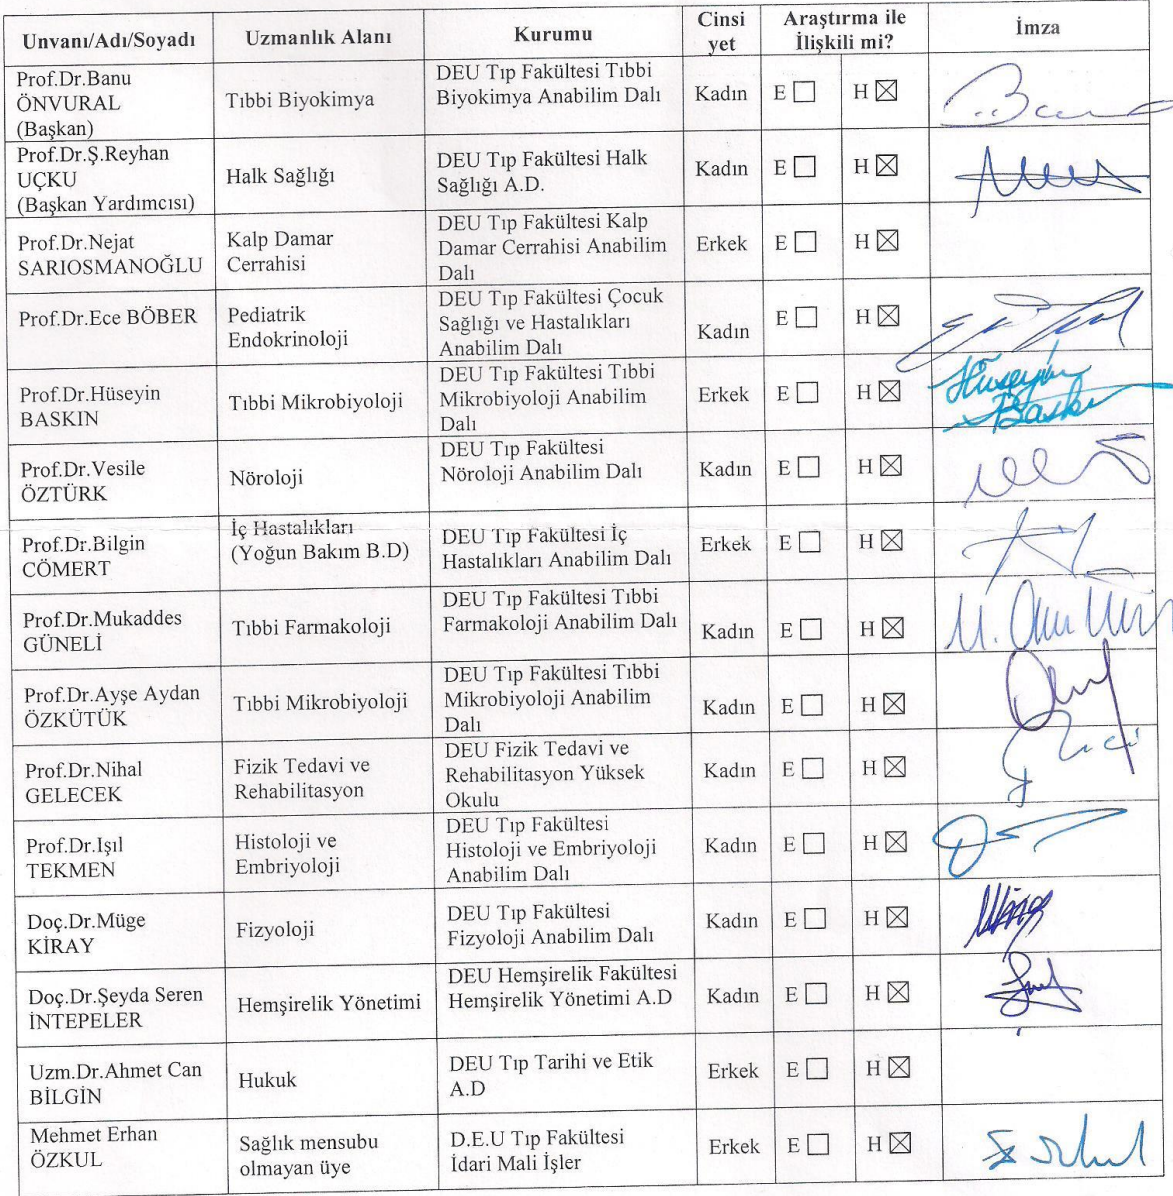 Unvanı/Adı/Soyadı Uzmanlık Alanı Kurumu Cinsi Araştırma ile İmza
yet İlişkili mi?
Prof.Dr.Banu
ÖNVURAL
(Başkan)
Tıbbi Biyokimya
DEU Tıp Fakültesi Tıbbi
Biyokimya Anabilim Dalı
Kadın
E ☐ H ☒
Prof.Dr.Ş.Reyhan
UÇKU
(Başkan Yardımcısı)
Halk Sağlığı
DEU Tıp Fakültesi Halk
Sağlığı A.D.
Kadın
E ☐ H ☒
Prof.Dr.Nejat
SARIOSMANOĞLU
Kalp Damar
Cerrahisi
DEU Tıp Fakültesi Kalp
Damar Cerrahisi Anabilim
Dalı
Erkek
E ☐ H ☒
Prof.Dr.Ece BÖBER
Pediatrik
Endokrinoloji
DEU Tıp Fakültesi Çocuk
Sağlığı ve Hastalıkları
Anabilim Dalı
Kadın
E ☐ H ☒
Prof.Dr.Hüseyin
BASKIN
Tıbbi Mikrobiyoloji
DEU Tıp Fakültesi Tıbbi
Mikrobiyoloji Anabilim
Dalı
Erkek
E ☐ H ☒
Hüseyin
Baskın
Prof.Dr.Vesile
ÖZTÜRK
Nöroloji
DEU Tıp Fakültesi
Nöroloji Anabilim Dalı
Kadın
E ☐ H ☒
Prof.Dr.Bilgin
CÖMERT
İç Hastalıkları
(Yoğun Bakım B.D)
DEU Tıp Fakültesi İç
Hastalıkları Anabilim Dalı
Erkek
E ☐ H ☒
Prof.Dr.Mukaddes
GÜNELİ
Tıbbi Farmakoloji
DEU Tıp Fakültesi Tıbbi
Farmakoloji Anabilim Dalı
Kadın
E ☐ H ☒
Prof.Dr.Ayşe Aydan
ÖZKÜTÜK
Tıbbi Mikrobiyoloji
DEU Tıp Fakültesi Tıbbi
Mikrobiyoloji Anabilim
Dalı
Kadın
E ☐ H ☒
Prof.Dr.Nihal
GELECEK
Fizik Tedavi ve
Rehabilitasyon
DEU Fizik Tedavi ve
Rehabilitasyon Yüksek
Okulu
Kadın
E ☐ H ☒
Prof.Dr.Işıl
TEKMEN
Histoloji ve
Embriyoloji
DEU Tıp Fakültesi
Histoloji ve Embriyoloji
Anabilim Dalı
Kadın
E ☐ H ☒
Doç.Dr.Müge
KİRAY
Fizyoloji
DEU Tıp Fakültesi
Fizyoloji Anabilim Dalı
Kadın
E ☐ H ☒
Doç.Dr.Şeyda Seren
İNTEPELER
Hemşirelik Yönetimi
DEU Hemşirelik Fakültesi
Hemşirelik Yönetimi A.D
Kadın
E ☐ H ☒
Uzm.Dr.Ahmet Can
BİLGİN
Hukuk
DEU Tıp Tarihi ve Etik
A.D
Erkek
E ☐ H ☒
Mehmet Erhan
ÖZKUL
Sağlık mensubu
olmayan üye
D.E.U Tıp Fakültesi
İdari Mali İşler
Erkek
E ☐ H ☒